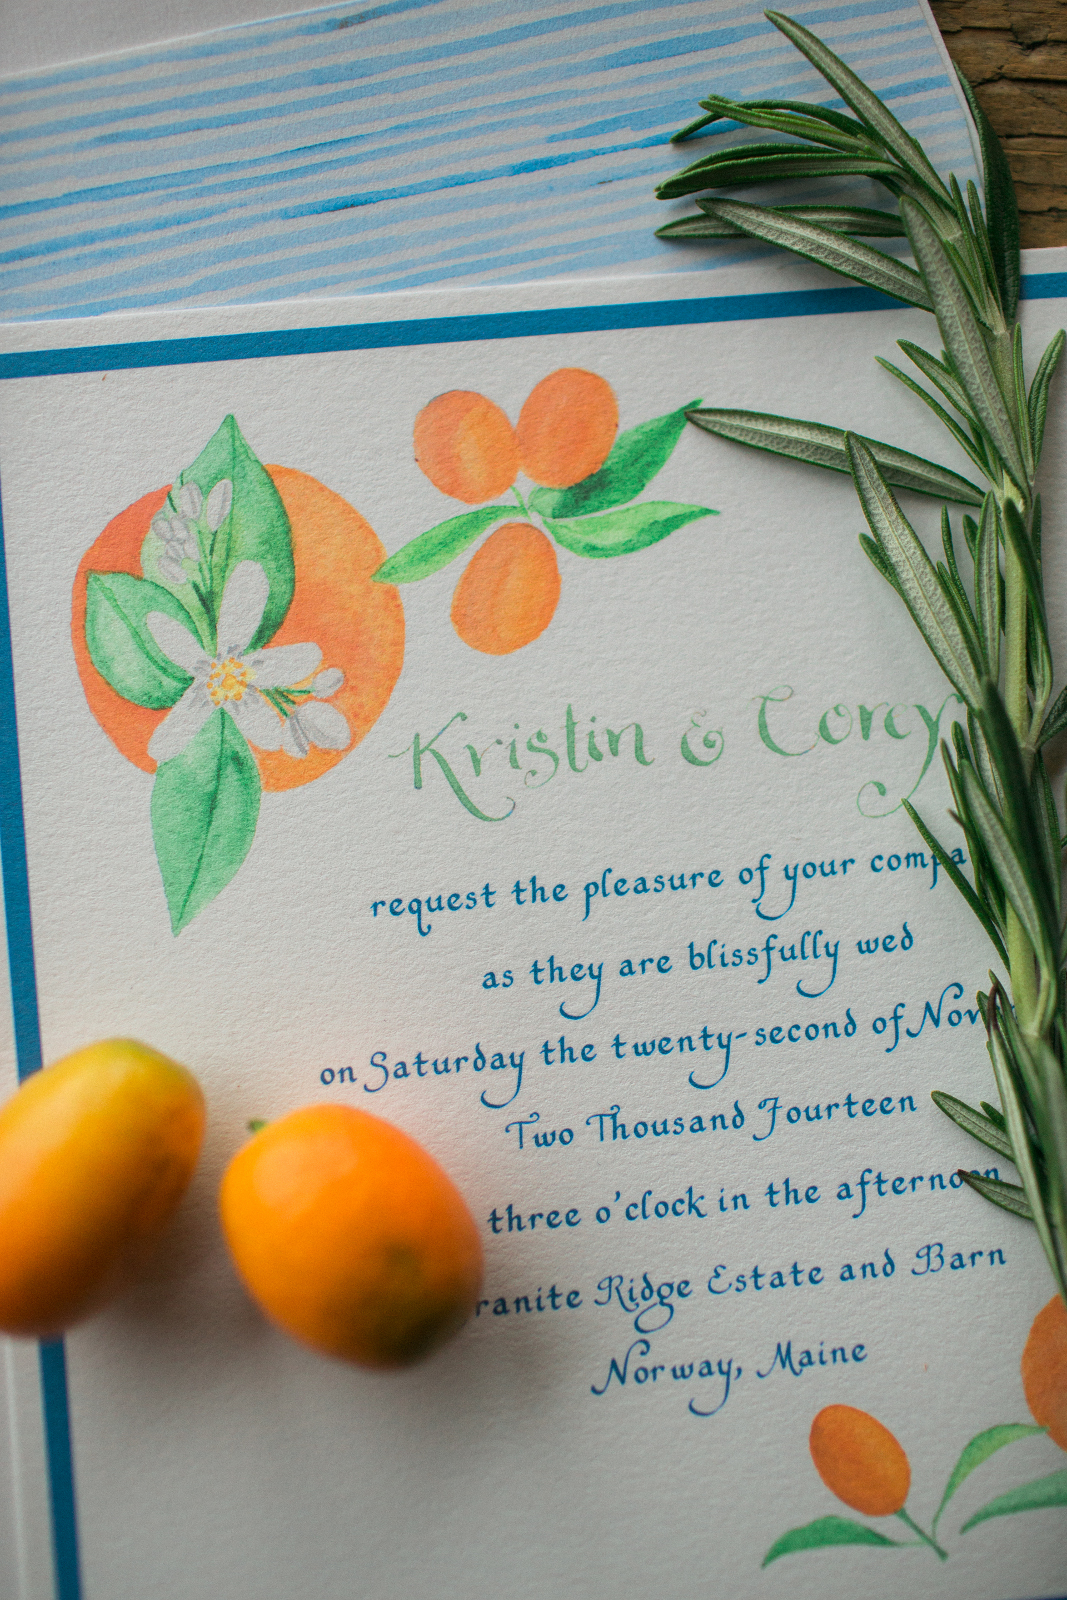 Kristin & Corey
request the pleasure of your compa
as they are blissfully wed
on Saturday the twenty-second of Nov
Two Thousand Fourteen
three o'clock in the afternoon
ranite Ridge Estate and Barn
Norway, Maine